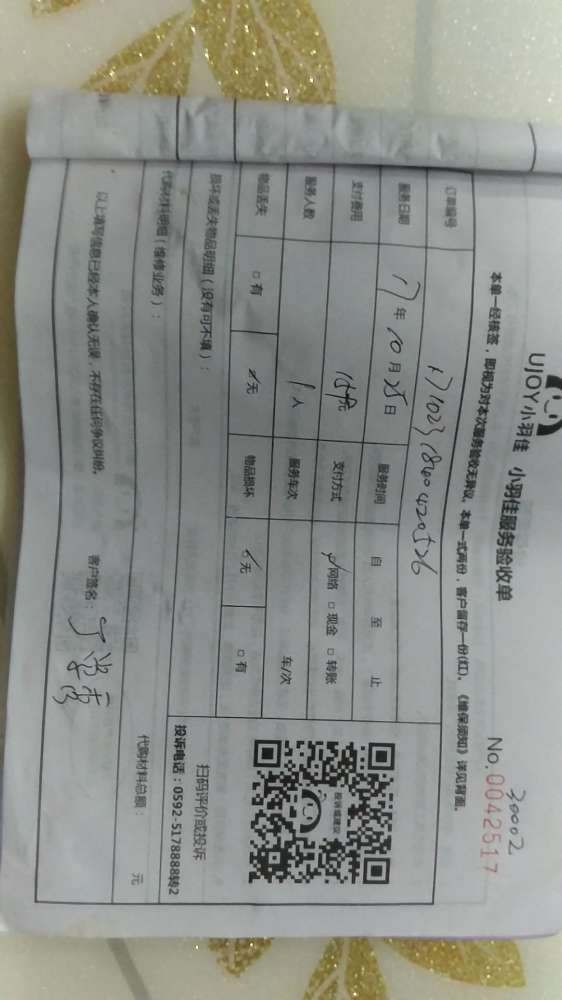 UJOY小羽佳 小羽佳服务验收单
30002
No.0042517
本单一经核签，即视为对本次服务验收无异议。本单一式两份，客户留存一份(红)。《维保须知》详见背面。
订单编号 1710231840420526
服务日期 17年10月25日 服务时间 自 至 止
支付费用 支付方式 网络 □现金 □转账
服务人数 1人 服务车次 车/次
物品丢失 □有 无 物品损坏 无 □有
损坏或丢失物品明细（没有可不填）：
代购材料明细（维修业务）：
代购材料总额： 元
以上填写信息已经本人确认无误，不存在任何争议纠纷。
客户签名：
投诉或建议
扫码评价或投诉
投诉电话：0592-5178888转2